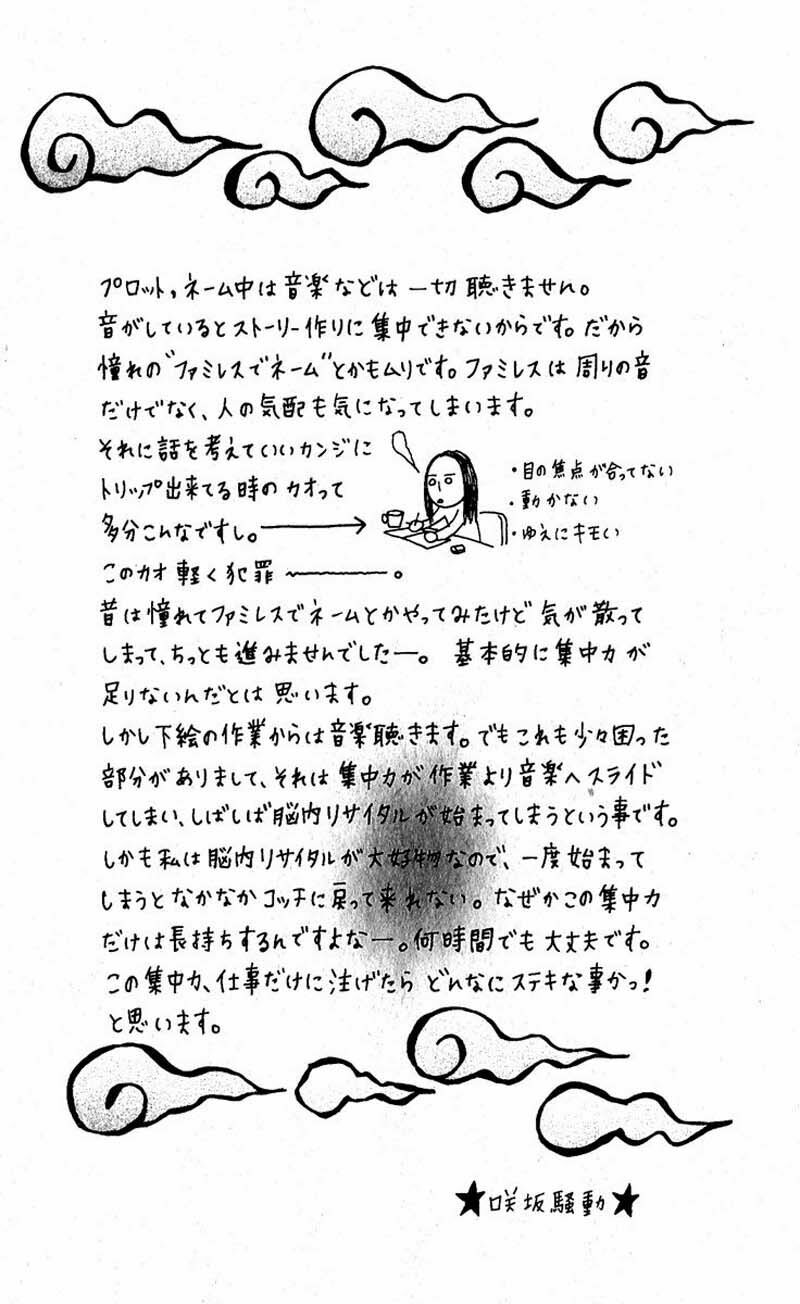 プロット,ネーム中は音楽などは一切聴きません。
音がしているとストーリー作りに集中できないからです。だから
憧れの"ファミレスでネーム"とかもムリです。ファミレスは周りの音
だけでなく、人の気配も気になってしまいます。
それに話を考えていいカンジに
トリップ出来てる時のカオって
多分こんなですし。
・目の焦点が合ってない
・動かない
・ゆえにキモい
このカオ軽く犯罪〜〜〜。
昔は憧れてファミレスでネームとかやってみたけど気が散って
しまって、ちっとも進みませんでしたー。 基本的に集中力が
足りないんだとは思います。
しかし下絵の作業からは音楽聴きます。でもこれも少々困った
部分がありまして、それは集中力が作業より音楽へスライド
してしまい、しばしば脳内リサイタルが始まってしまうという事です。
しかも私は脳内リサイタルが大好物なので、一度始まって
しまうとなかなかコッチに戻って来れない。なぜかこの集中力
だけは長持ちするんですよなー。何時間でも大丈夫です。
この集中力、仕事だけに注げたらどんなにステキな事かっ!
と思います。
★咲坂騒動★